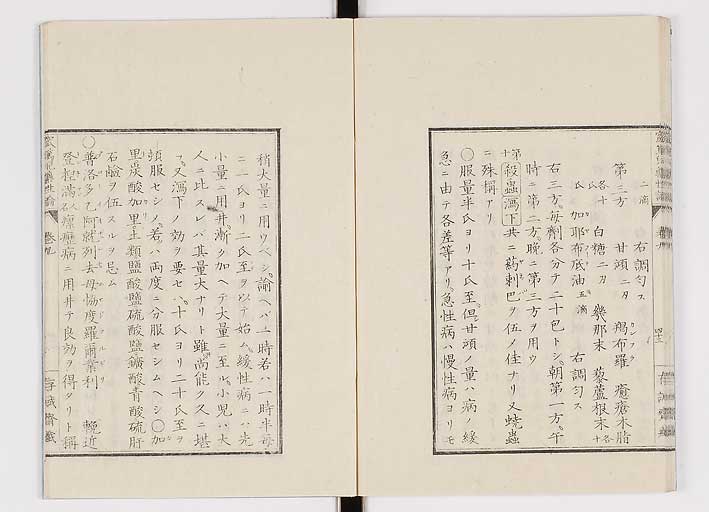 二滴 右調匀ス
第三方 甘頭ニタ 羯布羅 癒瘡木脂
各十氏 白糖二刄 幾那末 藜蘆根末各十
氏 加耶布底油五滴 右調匀ス
右三方。毎劑各分ナ二十包トシ。朝第一方。午
時ニ第二方。晩ニ第三方ヲ用ウ
第十殺蟲瀉下共ニ葯剌巴ヲ伍ノ佳ナリ又蟯蟲
ニ殊稱アリ
○服量半氏ヨリ十氏至。但甘頭ノ量ハ病ノ緩
急ニ由テ各差等アリ。急性病ハ慢性病ヨリモ
稍大量ニ用ウベシ。諭ヘバ一時若ハ一時半毎
ニ一氏ヨリ二氏至ヲ以テ始ム。緩性病ニハ先
小量ニ用井。漸ク加ヘテ大量ニ至ル。小児ハ大
人ニ比スレバ其量大ナリト雖。尚能クスニ堪
フ。又瀉下ノ効ヲ要セハ。十氏ヨリ二十氏至ヲ
頓服セシム。若ハ両度ニ分服セシムヘシ○加
里炭酸加里土類鹽酸鹽硫酸鹽鑛酸青酸硫肝
石鹸ヲ伍スルヲ忌ム
○普洛多乙阿就列去母恊度羅爾葉利 輓近
登椏満氏瘰癧病ニ用井テ良効ヲ得タリト稱
巻九
存誠齋蔵